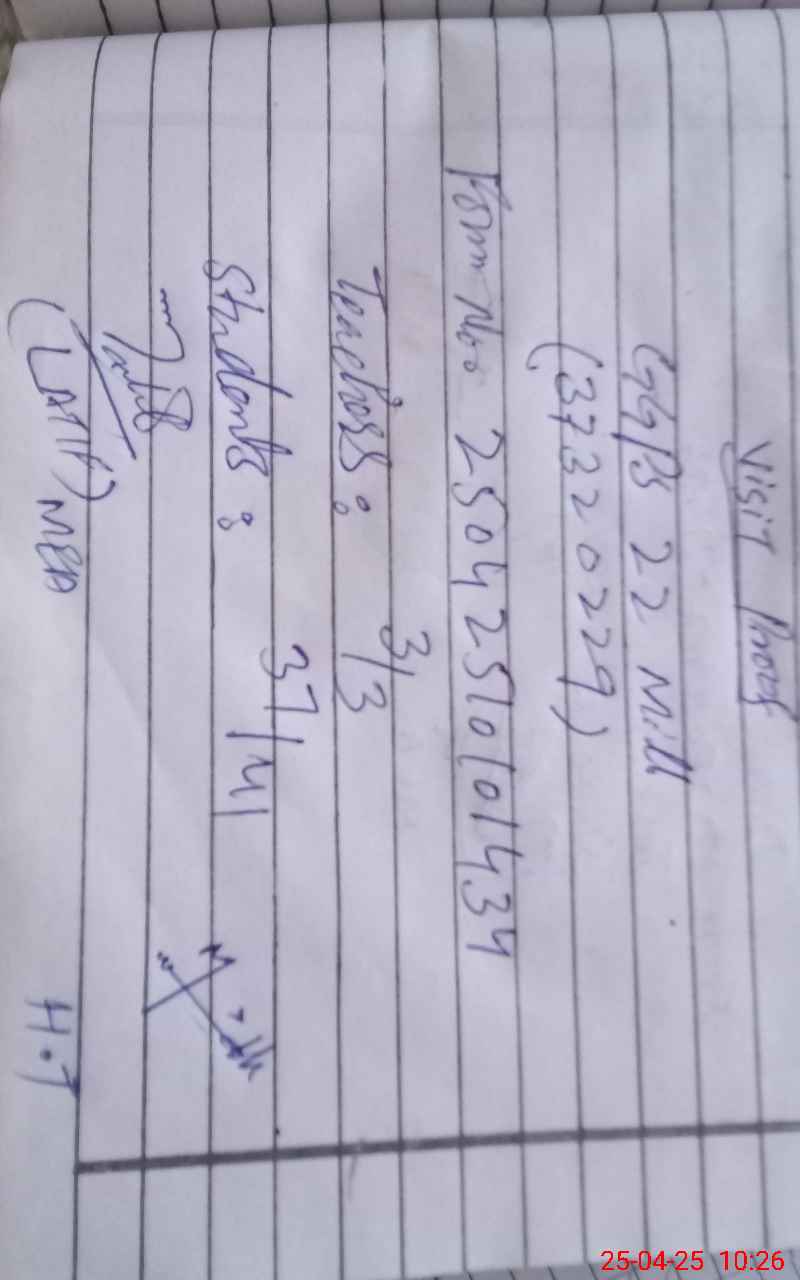 Visit Proof
GGPS 22 Mill
(37320229)
Form No: 2504251010101434
Teachers: 3/3
Students: 37/41
(LATIF) MEA
H.T
25-04-25 10:26